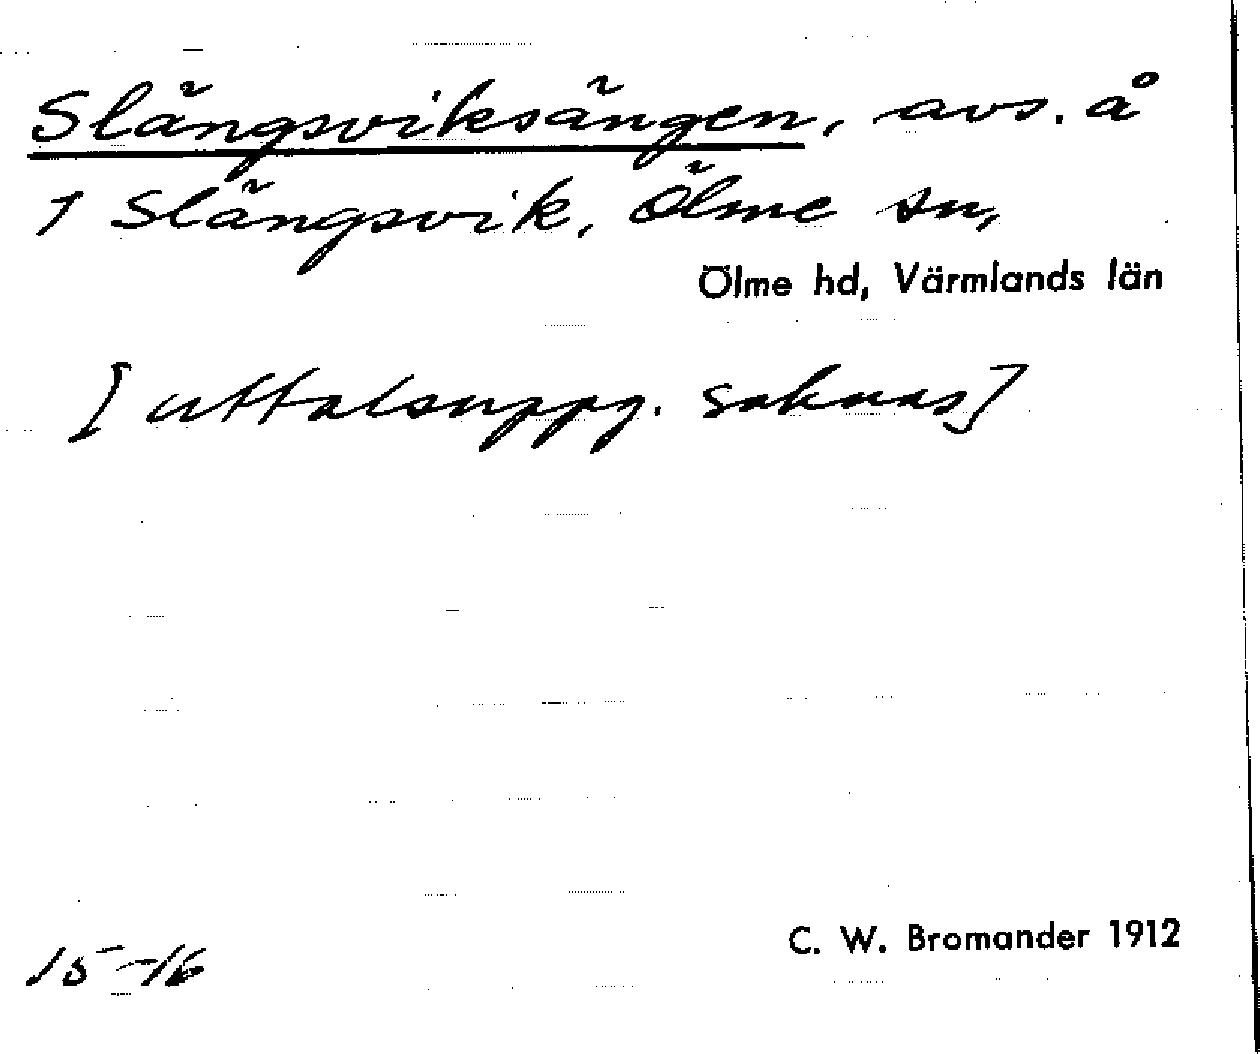 Slängsviksängen, avs. å
1 Slängsvik, Ölme sn,
Ölme hd, Värmlands län
[uttalsuppg. saknas]
C. W. Bromander 1912
15-16